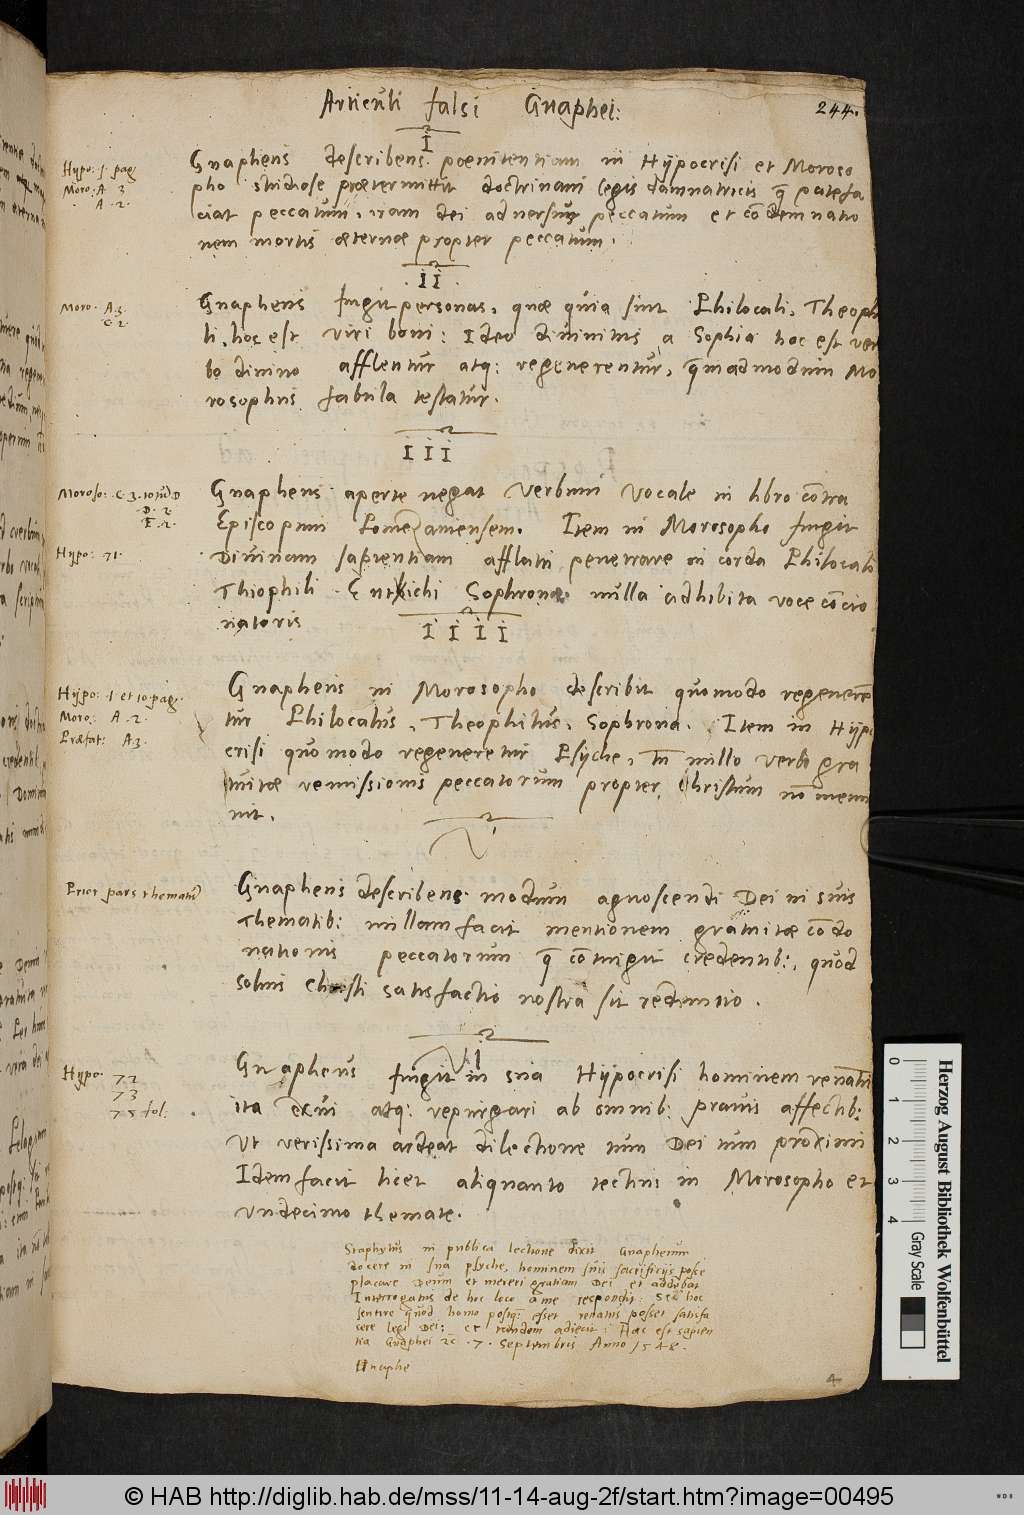 Articuli falsi Gnaphei:
244.
I
Hypo: 1. pag
Moro: A 3
A. 2.
Gnapheus describens poenitentiam in Hypocrisi et Moroso
pho studiose praetermittit doctrinam legis damnatricis q̄ patefa
ciat peccatum, iram dei adversus peccatum et cōdemnatio
nem mortis aeternae propter peccatum.
II
Moro. A 3.
C 2.
Gnapheus fingit personas, quae quia sint Philocali, Theoph
li, hoc est viri boni: Ideo divinitus a Sophia hoc est ver
bo divino afflentur atq: regenerentur, q̄madmodum Mo
rosophus fabula testatur.
III
Moroso: C. 3.
D. 2
E. 2.
Hypo: 71.
Gnapheus aperte negat verbum vocale in libro cōtra
Episcopum Pomezaniensem. Item in Morosopho fingit
Divinam sapientiam afflatu penetrare in corda Philocali
Theophili Eutichi Sophronae nulla adhibita voce cōcio
natoris
IIII
Hypo: 1 et 10 pag.
Moro: A. 2.
Praefat: A 3.
Gnapheus in Morosopho describit quomodo regenere
tur Philocalus, Theophilus, Sophrona. Item in Hypo
crisi quomodo regeneretur Psyche, nullo verbo gra
tuitae remissionis peccatorum propter Christum nō memi
nit.
V
Prior pars thematū
Gnapheus describens modum agnoscendi Dei in suis
Thematib: nullam facit mentionem gratuitae cōdo
nationis peccatorum q̄ cōtingit credentib:, quod
solius Christi satisfactio nostra sit redemtio.
VI
Hypo. 72
73
75 fol:
Gnapheus fingit in sua Hypocrisi hominem renatū
ita exui atq: repurgari ab omnib: pravis affectib:
Ut verissima ardeat dilectione tum Dei tum proximi
Idem facit licet aliquanto tectius in Morosopho et
undecimo themate.
Staphylus in publica lectione dixit Gnapheum
docere in sua psyche, hominem suis sacrificijs posse
placare Deum et mereri gratiam Dei et addebat
Interrogatus de hoc loco a me respondit: se hoc
sentire quod homo postq: esset renatus posset satisfa
cere legi Dei: et tandem adiecit: Haec est sapien
tia Gnaphei 7. Septembris Anno 1548.
Gnaphe
4
0 1 2 3 4
Gray Scale
Herzog August Bibliothek Wolfenbüttel
© HAB http://diglib.hab.de/mss/11-14-aug-2f/start.htm?image=00495